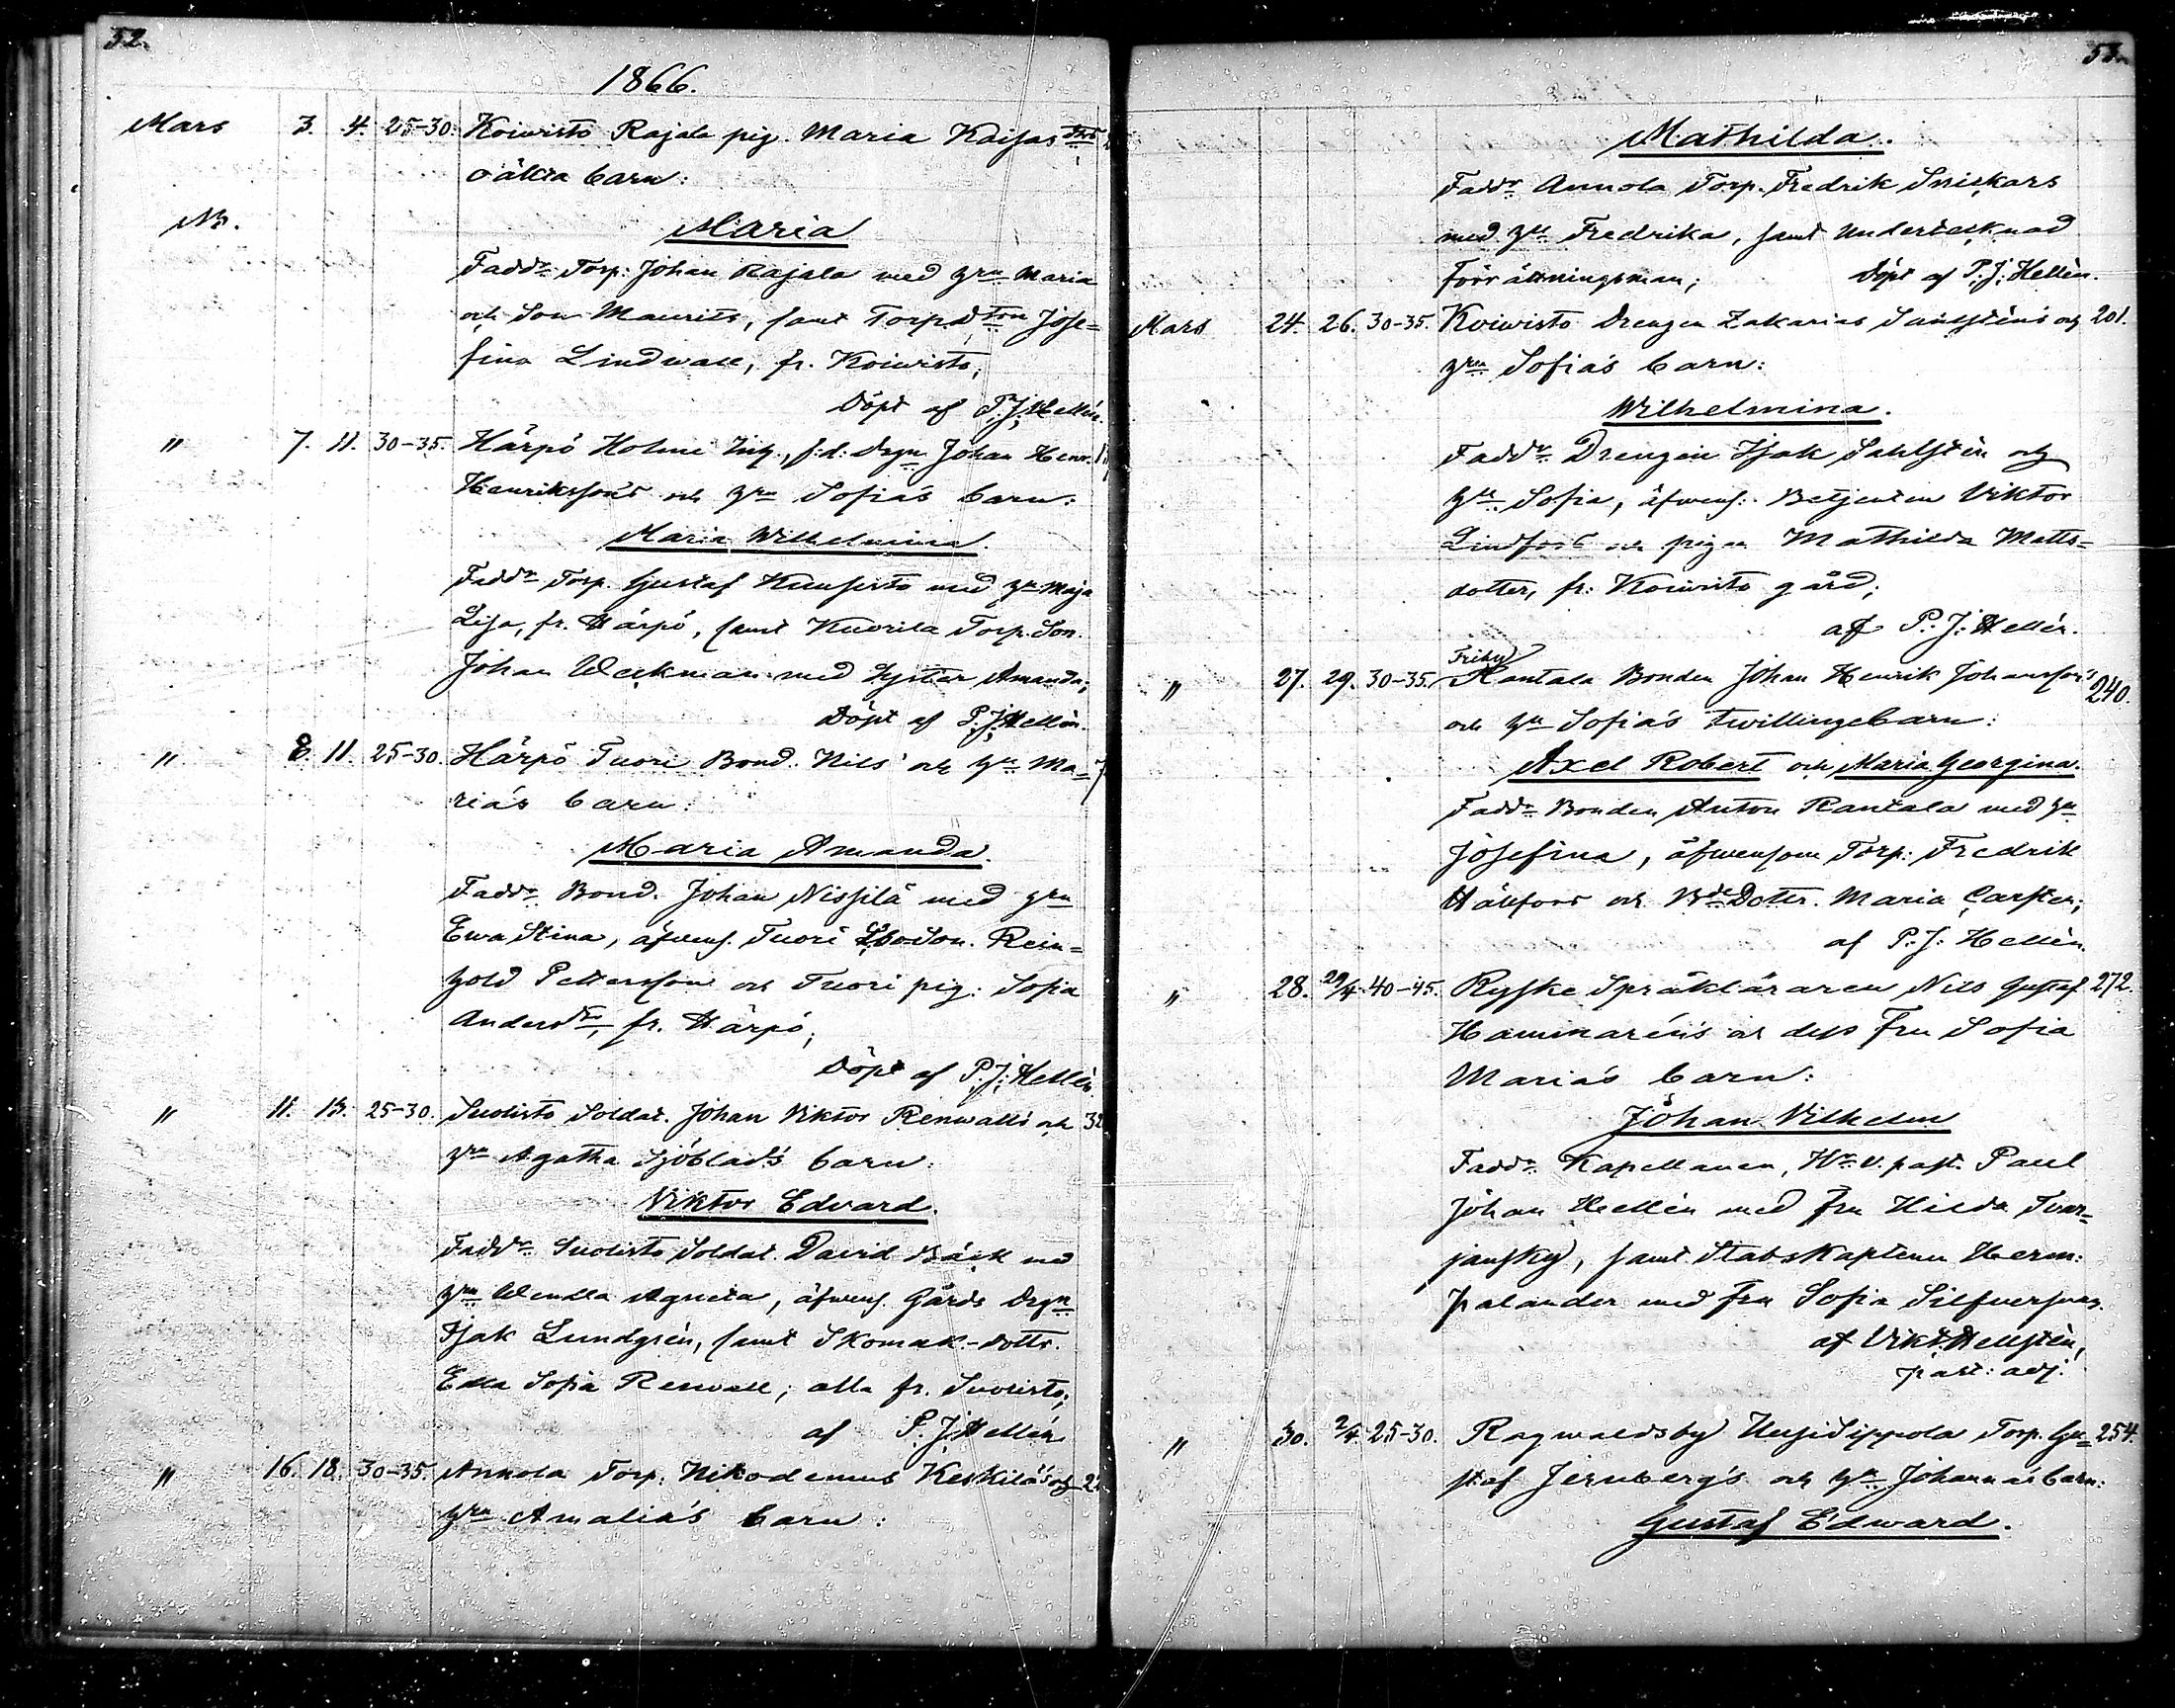 52.
1866.
Mars 3. 4. 25-30. Koiwisto Rajala pig. Maria Kaisas dtrs
oäkta barn:
Maria
Faddr Torp: Johan Rajala med hru Maria
och Son Maurits, samt Torp.dtrn Jose-
fina Lindwall, fr. Koiwisto;
Döpt af P.J. Hellén.
" 7. 11. 30-35. Härpö Holmi Inh., f.d. Drgn Johan Henr.
Henriksson's och hru Sofia's barn:
Maria Wilhelmina.
Faddr Torp. Gustaf med hru Maja
Lisa, fr. Härpö, samt Kuorila Torp. Son.
Johan Weckman med Syster Amanda;
Döpt af P.J. Hellén.
" 8. 11. 25-30. Härpö Tuori Bond. Nils' och hru Ma-
ria's barn:
Maria Amanda.
Faddr Bond. Johan Nissilä med hru
Ewa Stina, äfvens. Tuori Son. Rein-
hold Pettersson och Tuori pig: Sofia
Andersdtr, fr. Härpö;
Döpt af P.J. Hellén.
" 11. 13. 25-30. Suolisto Soldat. Johan Viktor Renwall's och 32
hru Agatha Sjöblad's barn:
Viktor Edvard.
Faddr Suolisto Soldat David Bäck med
hru Wendla Agneta, äfvens. Gårds Drgn
Isak Lundgrén, samt Skomak.-dottr.
Edla Sofia Renwall; alla fr. Suolisto;
af P.J. Hellén
" 16. 18. 30-35. Annola Torp. Nikodemus Keskilä's och 2
hru Amalia's barn:
53.
Mathilda.
Faddr Annola Torp. Fredrik Snickars
med hru Fredrika, samt Undertecknad
Förrättningsman; Döpt af P.J. Hellén.
Mars 24. 26. 30-35. Koiwisto Drengen Zakarias Sahlstén's och 201.
hru Sofia's barn:
Wilhelmina.
Faddr Drengen Isak Sahlstén och
hru Sofia, äfvens: Betjenten Viktor
Lindfors och pigan Mathilda Matts-
dotter, fr: Koiwisto gård;
af P.J. Hellén.
Friby
" 27. 29. 30-35. Rantala Bonden Johan Henrik Johansson's 240.
och hru Sofia's twillingebarn:
Axel Robert och Maria Georgina.
Faddr Bonden Anton Rantala med hru
Josefina, äfvensom Torp: Fredrik
Hällfors och BdeDottr. Maria Carsten;
af P.J. Hellén.
" 28. 29/4. 40-45. Ryske Språkläraren Nils Gustaf 272.
Hammarén's och dess Fru Sofia
Maria's barn:
Johan Vilhelm
Faddr Kapellanen, Hr v. past. Paul
Johan Hellén med fru Hilda Tvar-
jansky, samt Stabskaptenen Herm:
Palander med fru Sofia Silfversvan.
af Vikt. Hellstén,
past: adj.
" 30. 2/4. 25-30. Ragwaldsby UusiSippola Torp. Gu- 254.
staf Jernberg's och hru Johanna's barn:
Gustaf Edward.